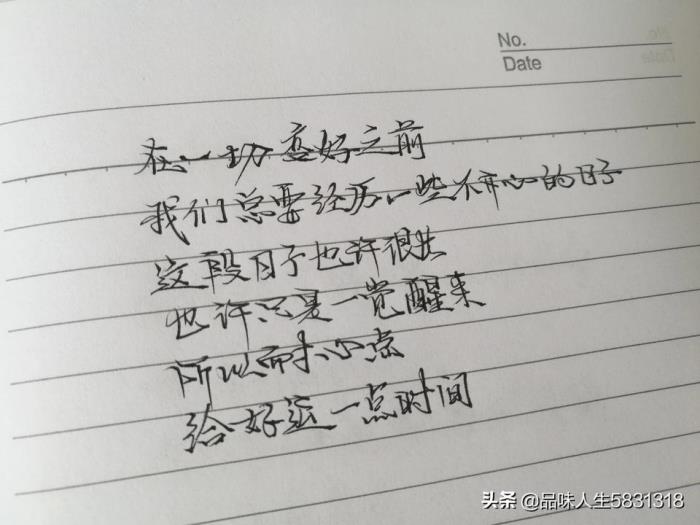 No.
Date
在一切变好之前
我们总要经历一些不开心的日子
这段日子也许很长
也许只是一觉醒来
所以耐心点
给好运一点时间
头条 @品味人生5831318